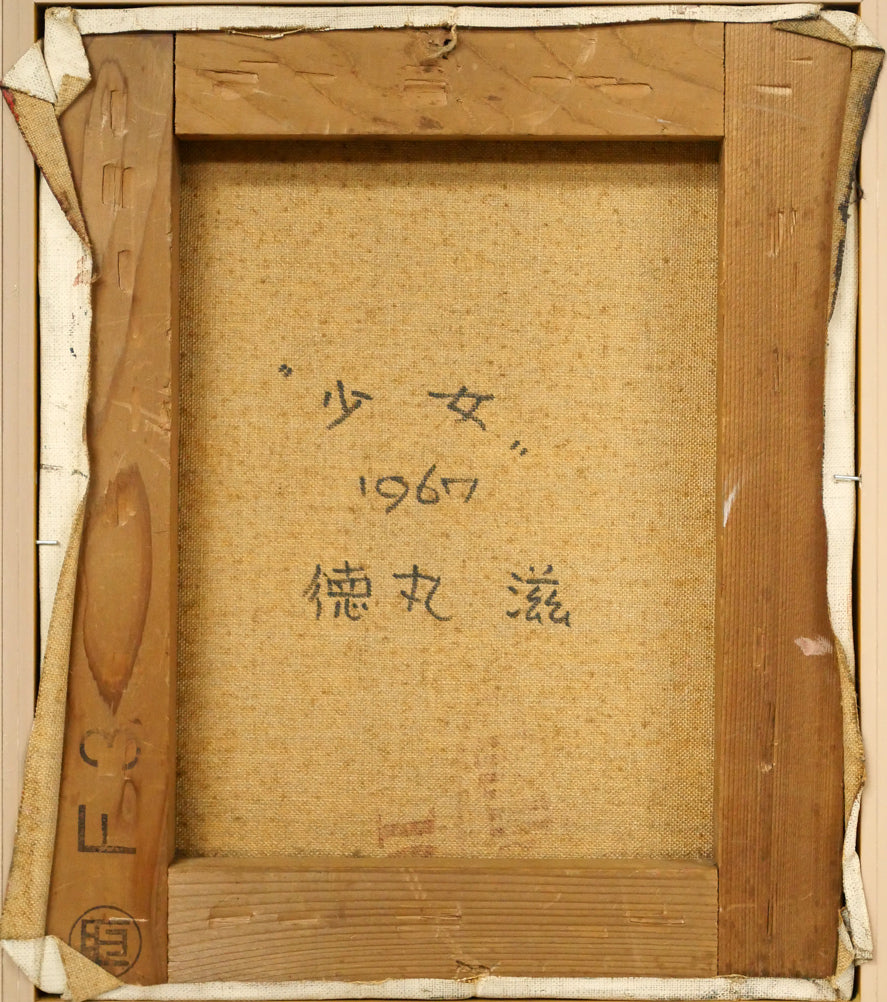 "少女"
1967
徳丸 滋
F3